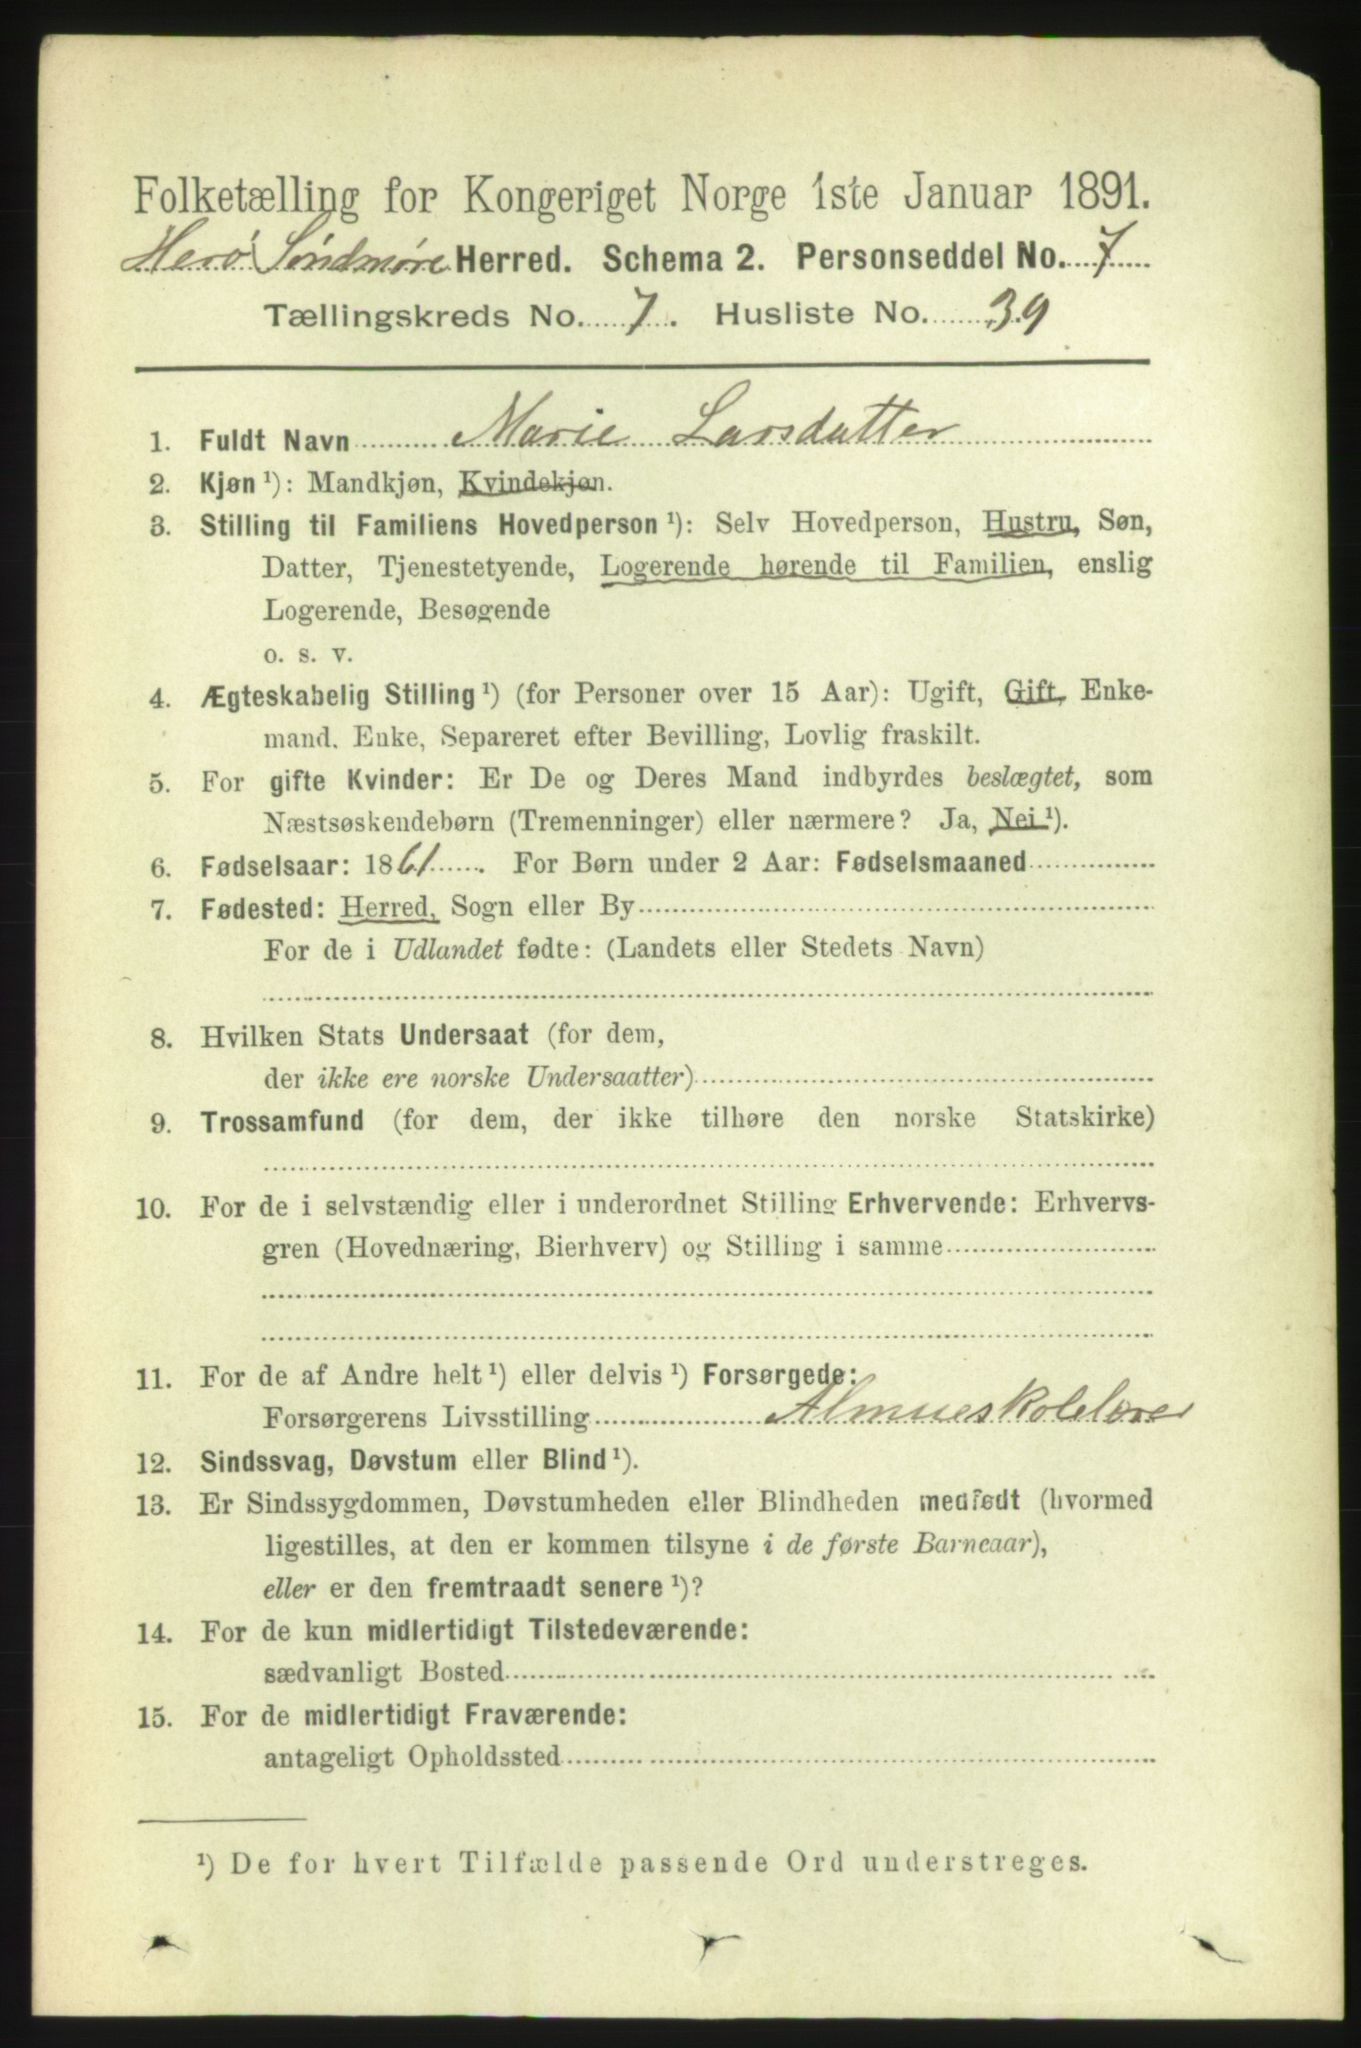 Folketælling for Kongeriget Norge 1ste Januar 1891.
Herø Søndmøre Herred. Schema 2. Personseddel No. 7
Tællingskreds No. 7. Husliste No. 39
1. Fuldt Navn Marie Larsdatter
2. Kjøn ¹): Mandkjøn, Kvindekjøn.
3. Stilling til Familiens Hovedperson ¹): Selv Hovedperson, Hustru, Søn,
Datter, Tjenestetyende, Logerende hørende til Familien, enslig
Logerende, Besøgende
o. s. v.
4. Ægteskabelig Stilling ¹) (for Personer over 15 Aar): Ugift, Gift, Enke-
mand, Enke, Separeret efter Bevilling, Lovlig fraskilt.
5. For gifte Kvinder: Er De og Deres Mand indbyrdes beslægtet, som
Næstsøskendebørn (Tremenninger) eller nærmere? Ja, Nei ¹).
6. Fødselsaar: 1861. For Børn under 2 Aar: Fødselsmaaned
7. Fødested: Herred, Sogn eller By
For de i Udlandet fødte: (Landets eller Stedets Navn)
8. Hvilken Stats Undersaat (for dem,
der ikke ere norske Undersaatter)
9. Trossamfund (for dem, der ikke tilhøre den norske Statskirke)
10. For de i selvstændig eller i underordnet Stilling Erhvervende: Erhvervs-
gren (Hovednæring, Bierhverv) og Stilling i samme
11. For de af Andre helt ¹) eller delvis ¹) Forsørgede:
Forsørgerens Livsstilling Almueskolelærer
12. Sindssvag, Døvstum eller Blind ¹).
13. Er Sindssygdommen, Døvstumheden eller Blindheden medfødt (hvormed
ligestilles, at den er kommen tilsyne i de første Barneaar),
eller er den fremtraadt senere ¹)?
14. For de kun midlertidigt Tilstedeværende:
sædvanligt Bosted
15. For de midlertidigt Fraværende:
antageligt Opholdssted
¹) De for hvert Tilfælde passende Ord understreges.